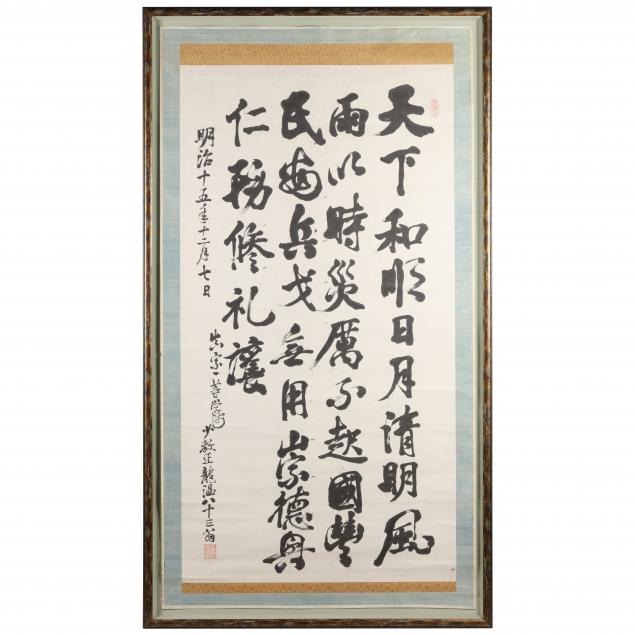 天下和順日月清明風
雨以時災厲不起國豐
民安兵戈無用崇德興
仁務修礼讓
明治十五年十二月七日
真宗一等学師少教正龍温八十三翁